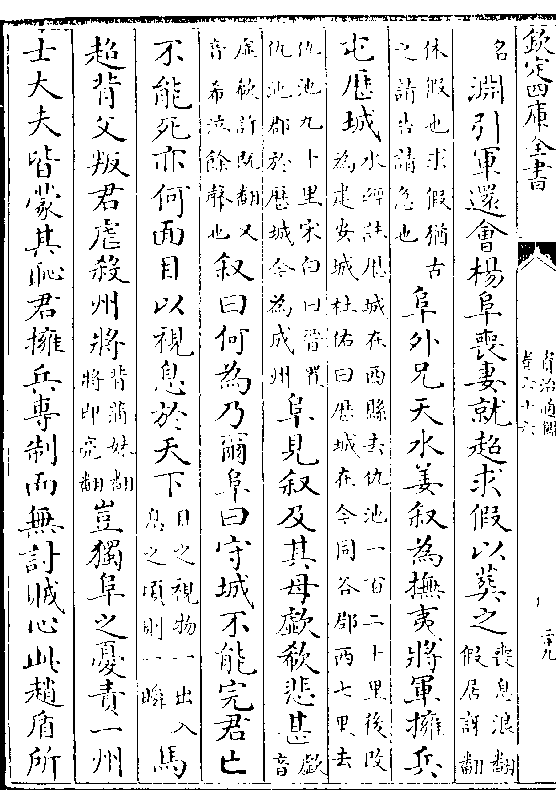 欽定四庫全書
資治通鑑
卷六十六
名淵引軍還會楊阜喪妻就超求假以葬之喪息浪翻假居訝翻
休假也求假猶古之請告請急也阜外兄天水姜叙為撫夷將軍擁兵
屯歴城水經註歴城在西縣去仇池一百二十里後改為建安城杜佑曰歴城在今同谷郡西七里去
仇池九十里宋白曰晉置仇池郡於歴城今為成州阜見叙及其母歔欷悲甚歔音
虚欷許既翻又音希泣餘聲也叙曰何為乃爾阜曰守城不能完君亡
不能死亦何面目以視息於天下目之視物一出入息之頃則一瞬馬
超背父叛君虐殺州將背蒲妹翻將即亮翻豈獨阜之憂責一州
士大夫皆蒙其恥君擁兵專制而無討賊心此趙盾所